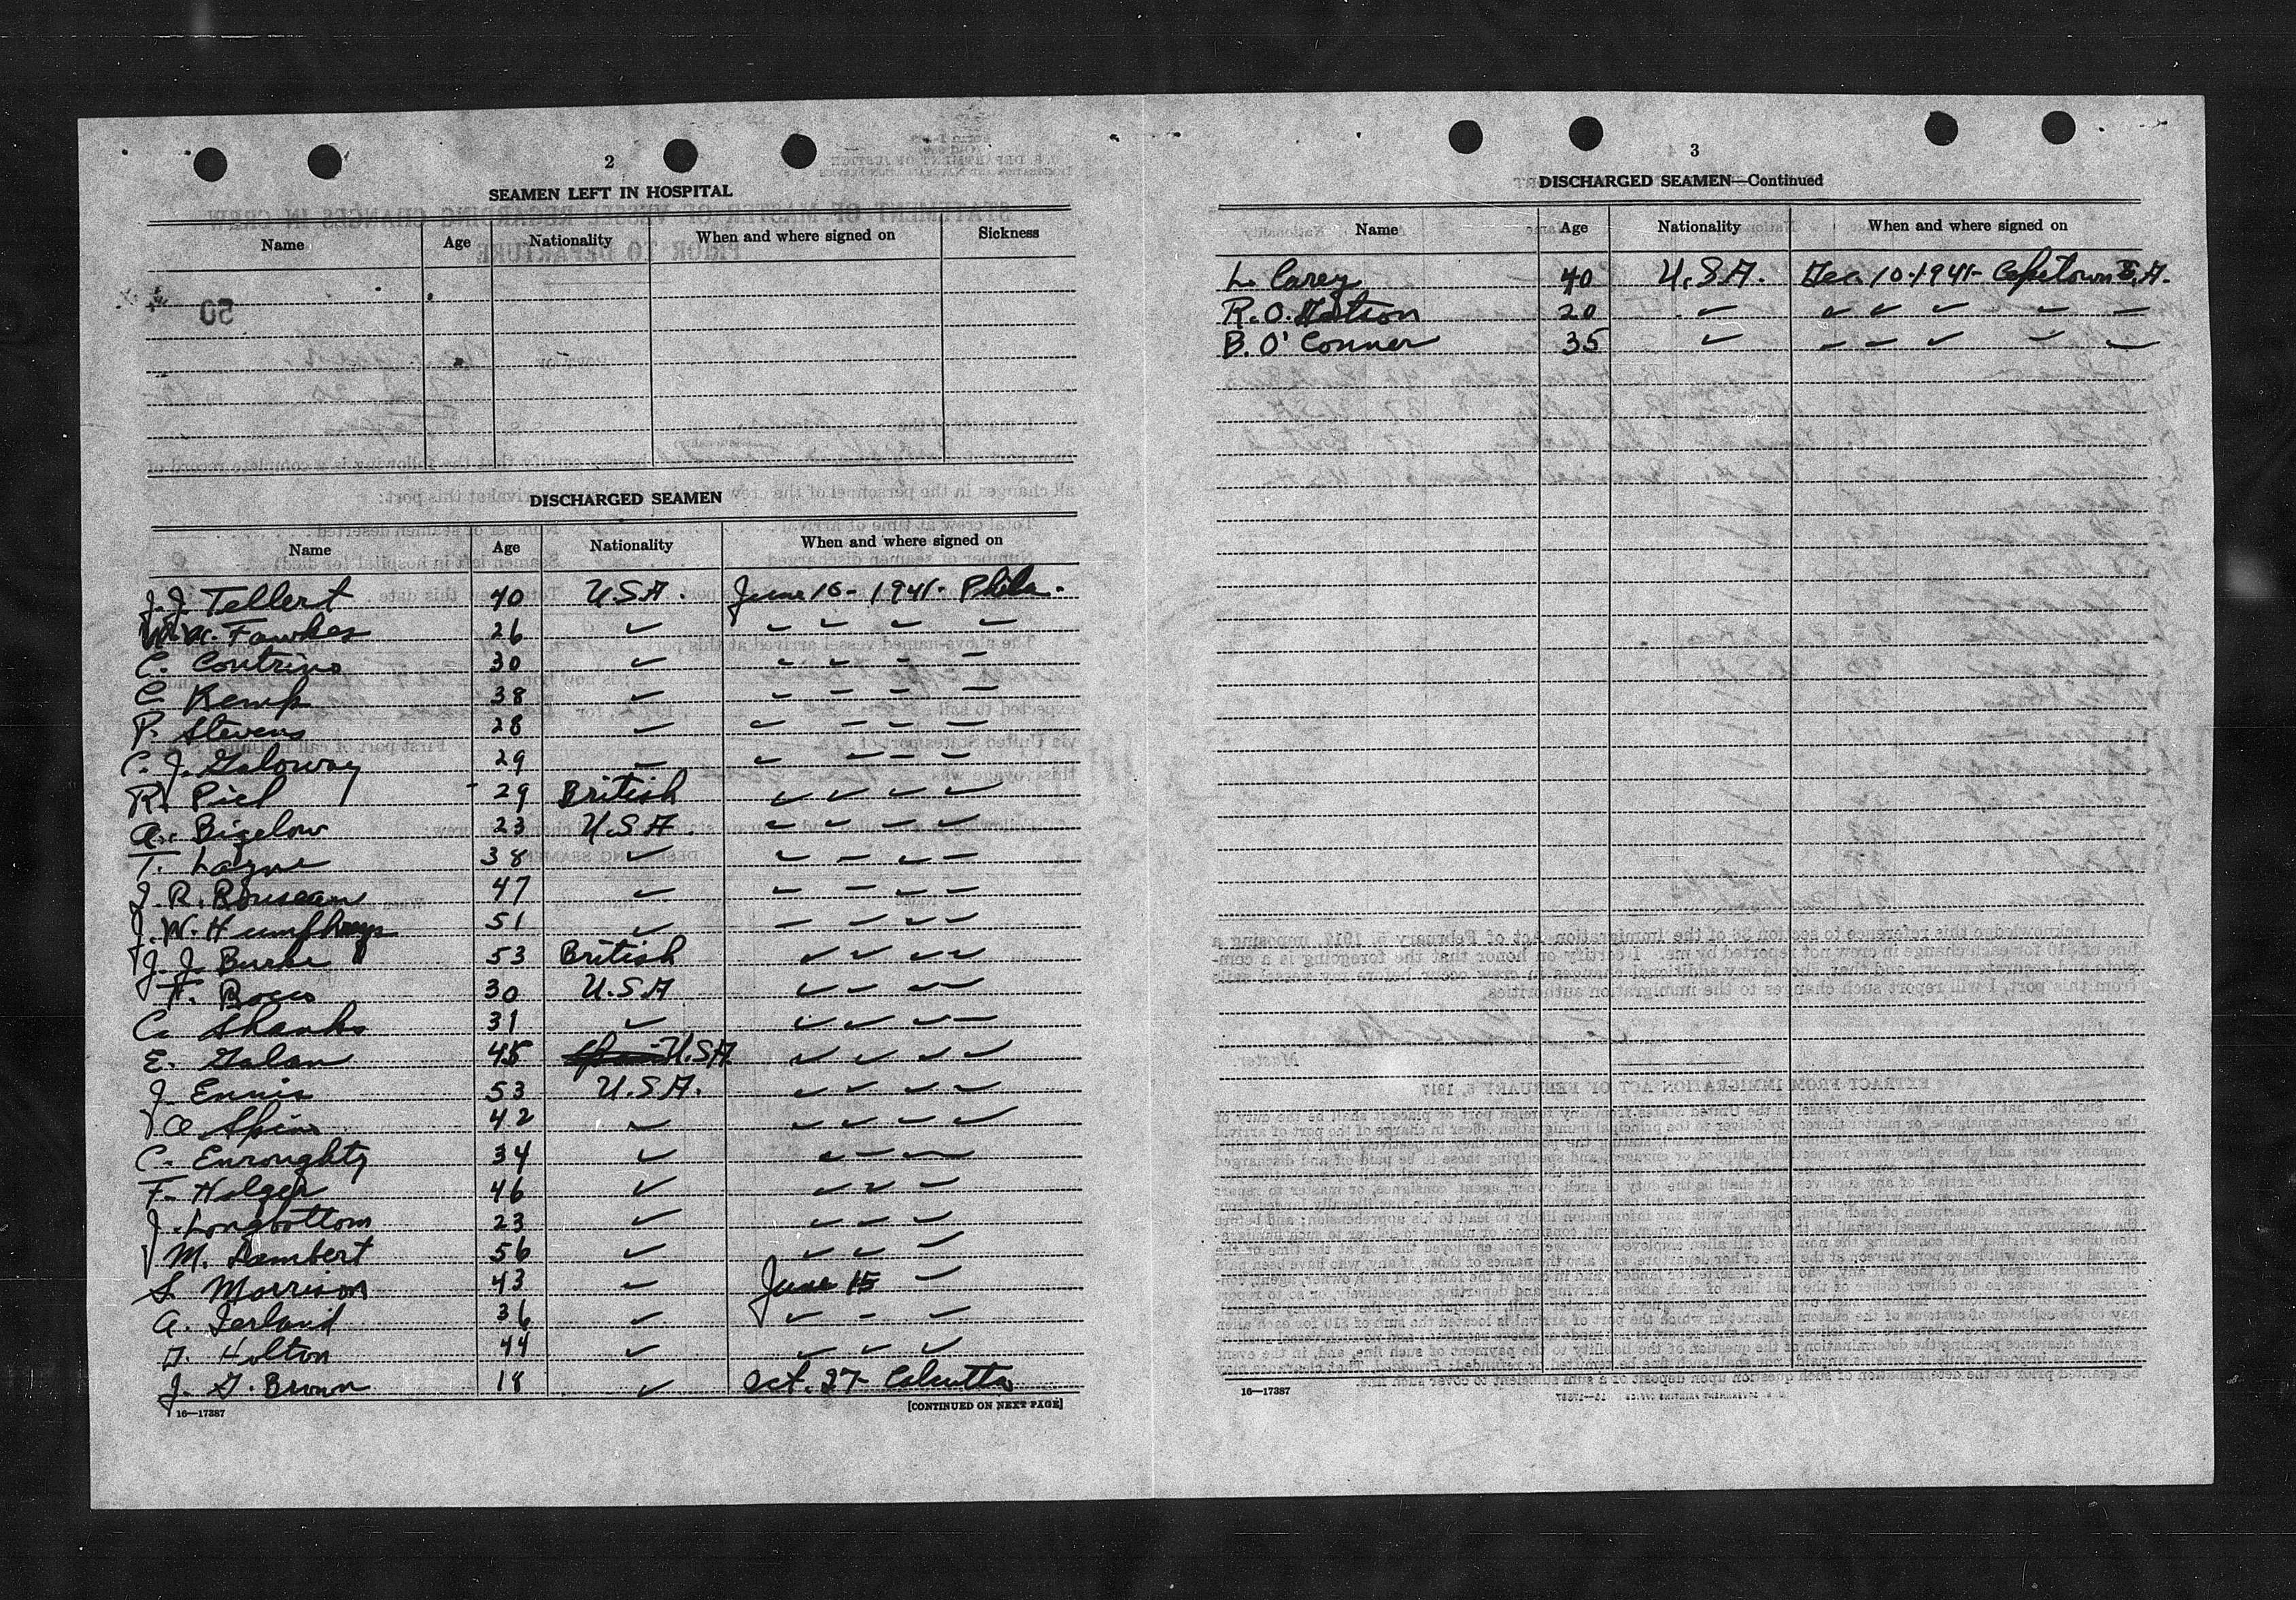 2
SEAMEN LEFT IN HOSPITAL
Name Age Nationality When and where signed on Sickness
DISCHARGED SEAMEN
Name Age Nationality When and where signed on
J. J. Tellert 40 U.S.A. June 16 - 1941 - Phila.
Fawkes 26 ✓
C. Contrino 30 ✓
C. Kemp 38 ✓
P. Stevens 28
C. J. Galoway 29
R. Piel 29 British
A. Bigelow 23 U.S.A.
T. Layne 38 ✓
J. R. Rouseau 47 ✓
J. W. Humphreys 51 ✓
J. J. Burke 53 British
Bocco 30 U.S.A
C. Shanks 31 ✓
E. Galan 45 U.S.A.
J. Ennis 53 U.S.A.
Spina 42 ✓
C. Enroughty 34 ✓
F. Holger 46 ✓
J. Longbottom 23 ✓
M. Lambert 56 ✓
S. Morrison 43 ✓ June 15
A. Ierland 36 ✓
Holton 44 ✓
J. G. Brown 18 ✓ Oct. 27 - Calcutta
16—17387
[CONTINUED ON NEXT PAGE]
3
DISCHARGED SEAMEN—Continued
Name Age Nationality When and where signed on
L. Carey 40 U.S.A. Dec. 10 - 1941 - Capetown S.A.
R. O. 20 ✓
B. O'Conner 35 ✓
16—17387